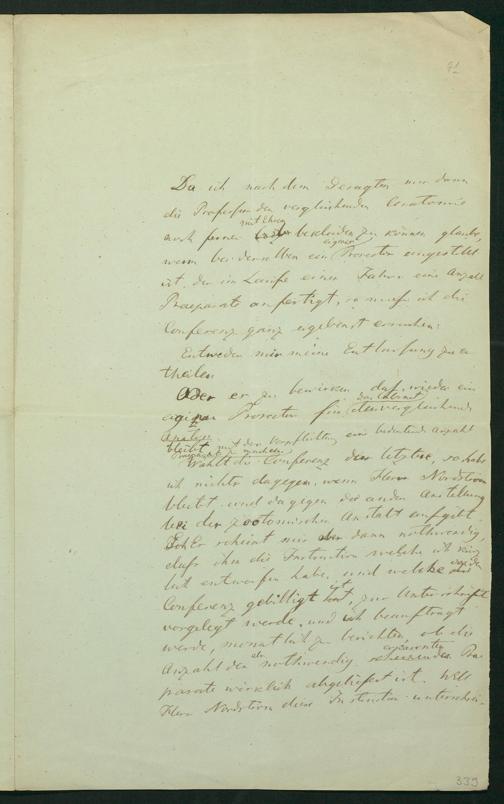 91
Da ich nach dem Gesagten nur dann
die Professur der vergleichenden Anatomie
mit Ehren
auch ferner bekleiden zu können glaube,
eigener
wenn bei derselben ein Prosector angestellt
ist, der im Laufe eines Jahres eine Anzahl
Praeparate anfertigt, so muss ich die
Conferenz ganz ergebenst ersuchen:
Entweder mir meine Entlassung zu er
theilen
Oder es zu bewirken, dass wieder ein
das Cabinet
eigener Prosector für der vergleichende
mit der Verpflichtung eine bedeutende Anzahl
bleibt
Praeparate zu machen
Wählt die Conferenz das letztere, so habe
ich nichts dagegen, wenn Herr Nordström
bleibt und dagegen die andere Anstellung
bei der zootomischen Anstalt aufgibt.
Er scheint mir aber dann nothwendig,
dass ihm die Instruction welche ich
entworfen habe, und welche die
ist
Conferenz gebilligt hat, zur Unterschrift
vorgelegt werde, und ich beauftragt
werde, monatlich zu berichten, ob die
Anzahl der als nothwendig Prae
parate wirklich abgeliefert ist. Will
Herr Nordström diese Instruction unterschrei-
339